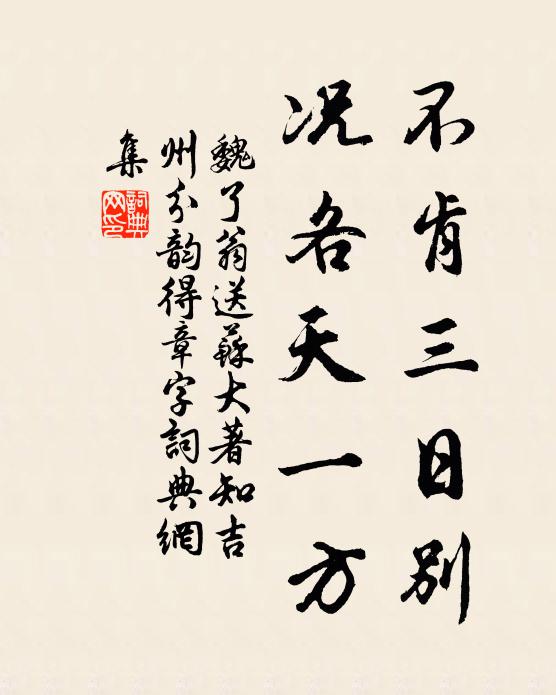 不肯三日别
况各天一方
魏了翁送蘇大著知吉
州分韵得章字詞典網
集
詞典
网印